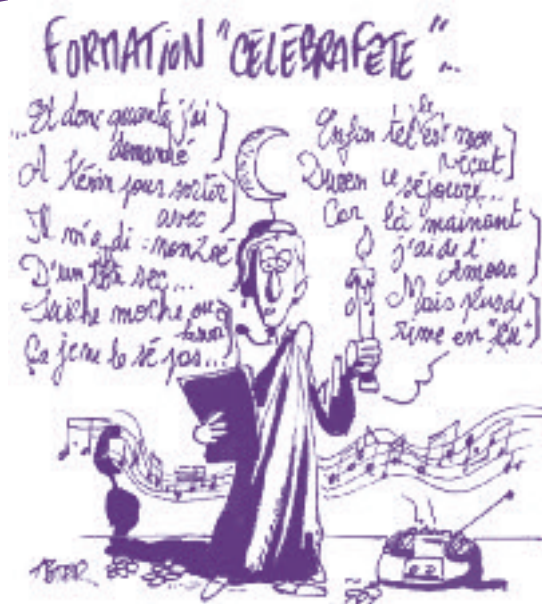 FORMATION "CÉLÉBRAFÊTE"...
...Et donc quanta j'ai
demandé
A Kévin pour sortor
avec
Il m'a di : non Zoé
D'un sec...
moche ou
Ça je ne le sé pas...
Enfin tel est mon
Duren ce séjoure...
Car là mainant
j'ai de l'
Amoure
Mais plus de
rime en "é"